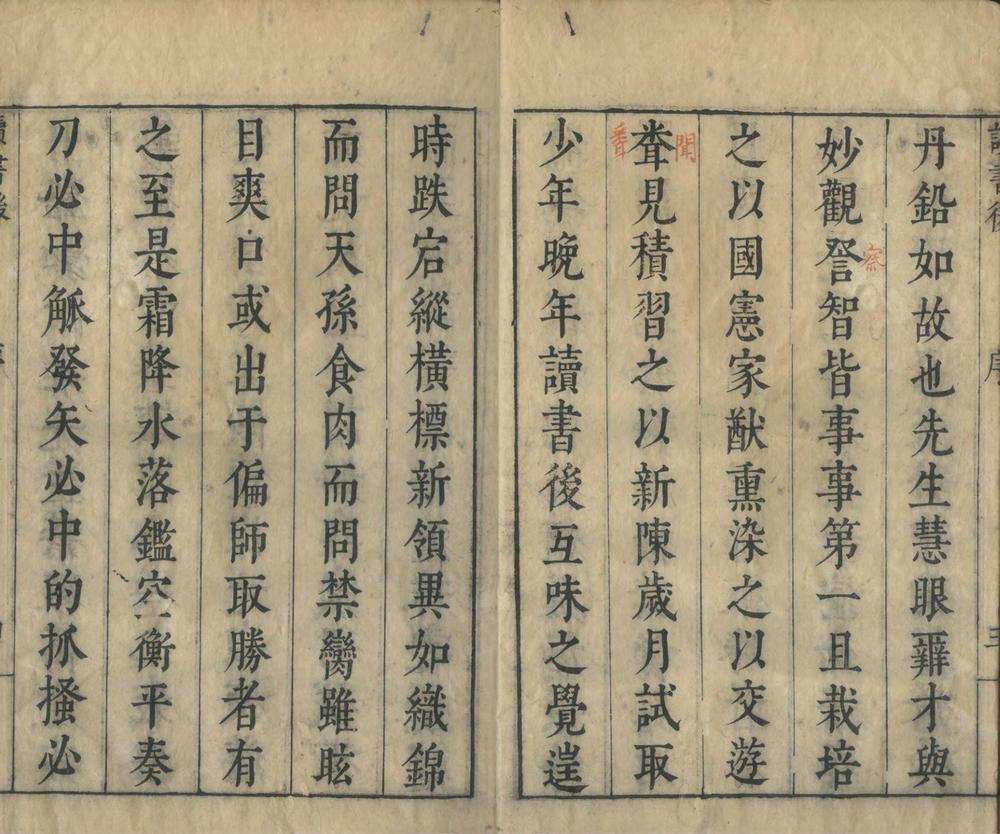 丹鉛如故也先生慧眼辯才與
察
妙觀詧智皆事事第一且栽培
之以國憲家猷熏染之以交遊
聞
見積習之以新陳歲月試取
少年晚年讀書後互味之覺逞
時跌宕縱橫標新領異如織錦
而問天孫食肉而問禁臠雖眩
目爽口或出于偏師取勝者有
之至是霜降水落鑑空衡平奏
刀必中觚發矢必中的抓搔必
讀書後